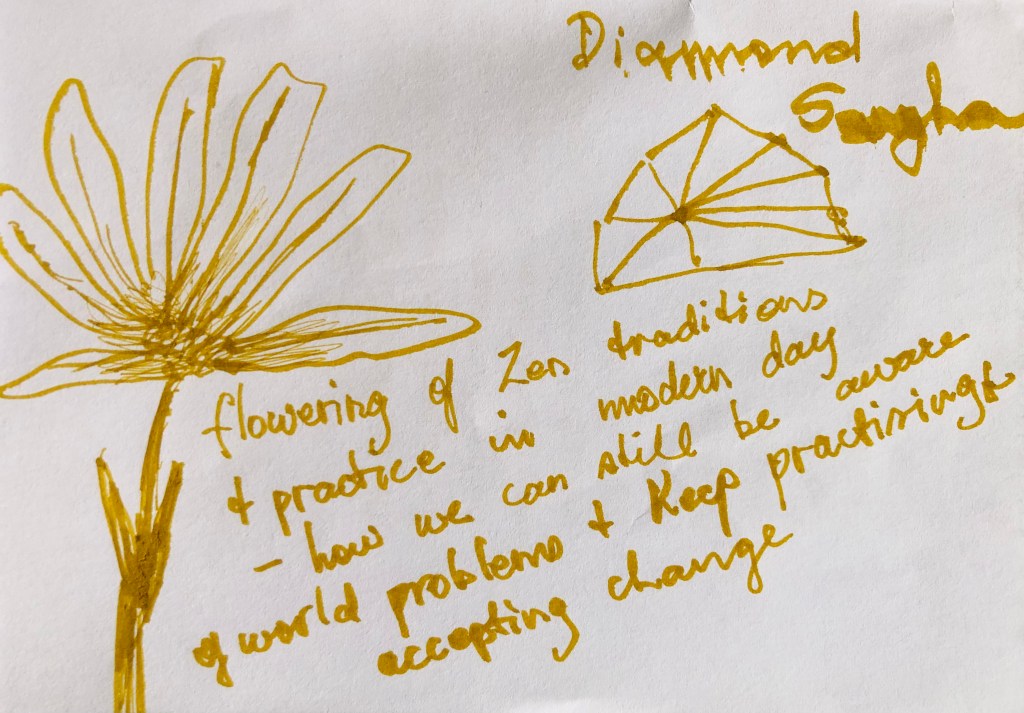 Diamond
Sangha
flowering of Zen traditions
+ practice in modern day
- how we can still be aware
of world problems + Keep practising +
accepting change